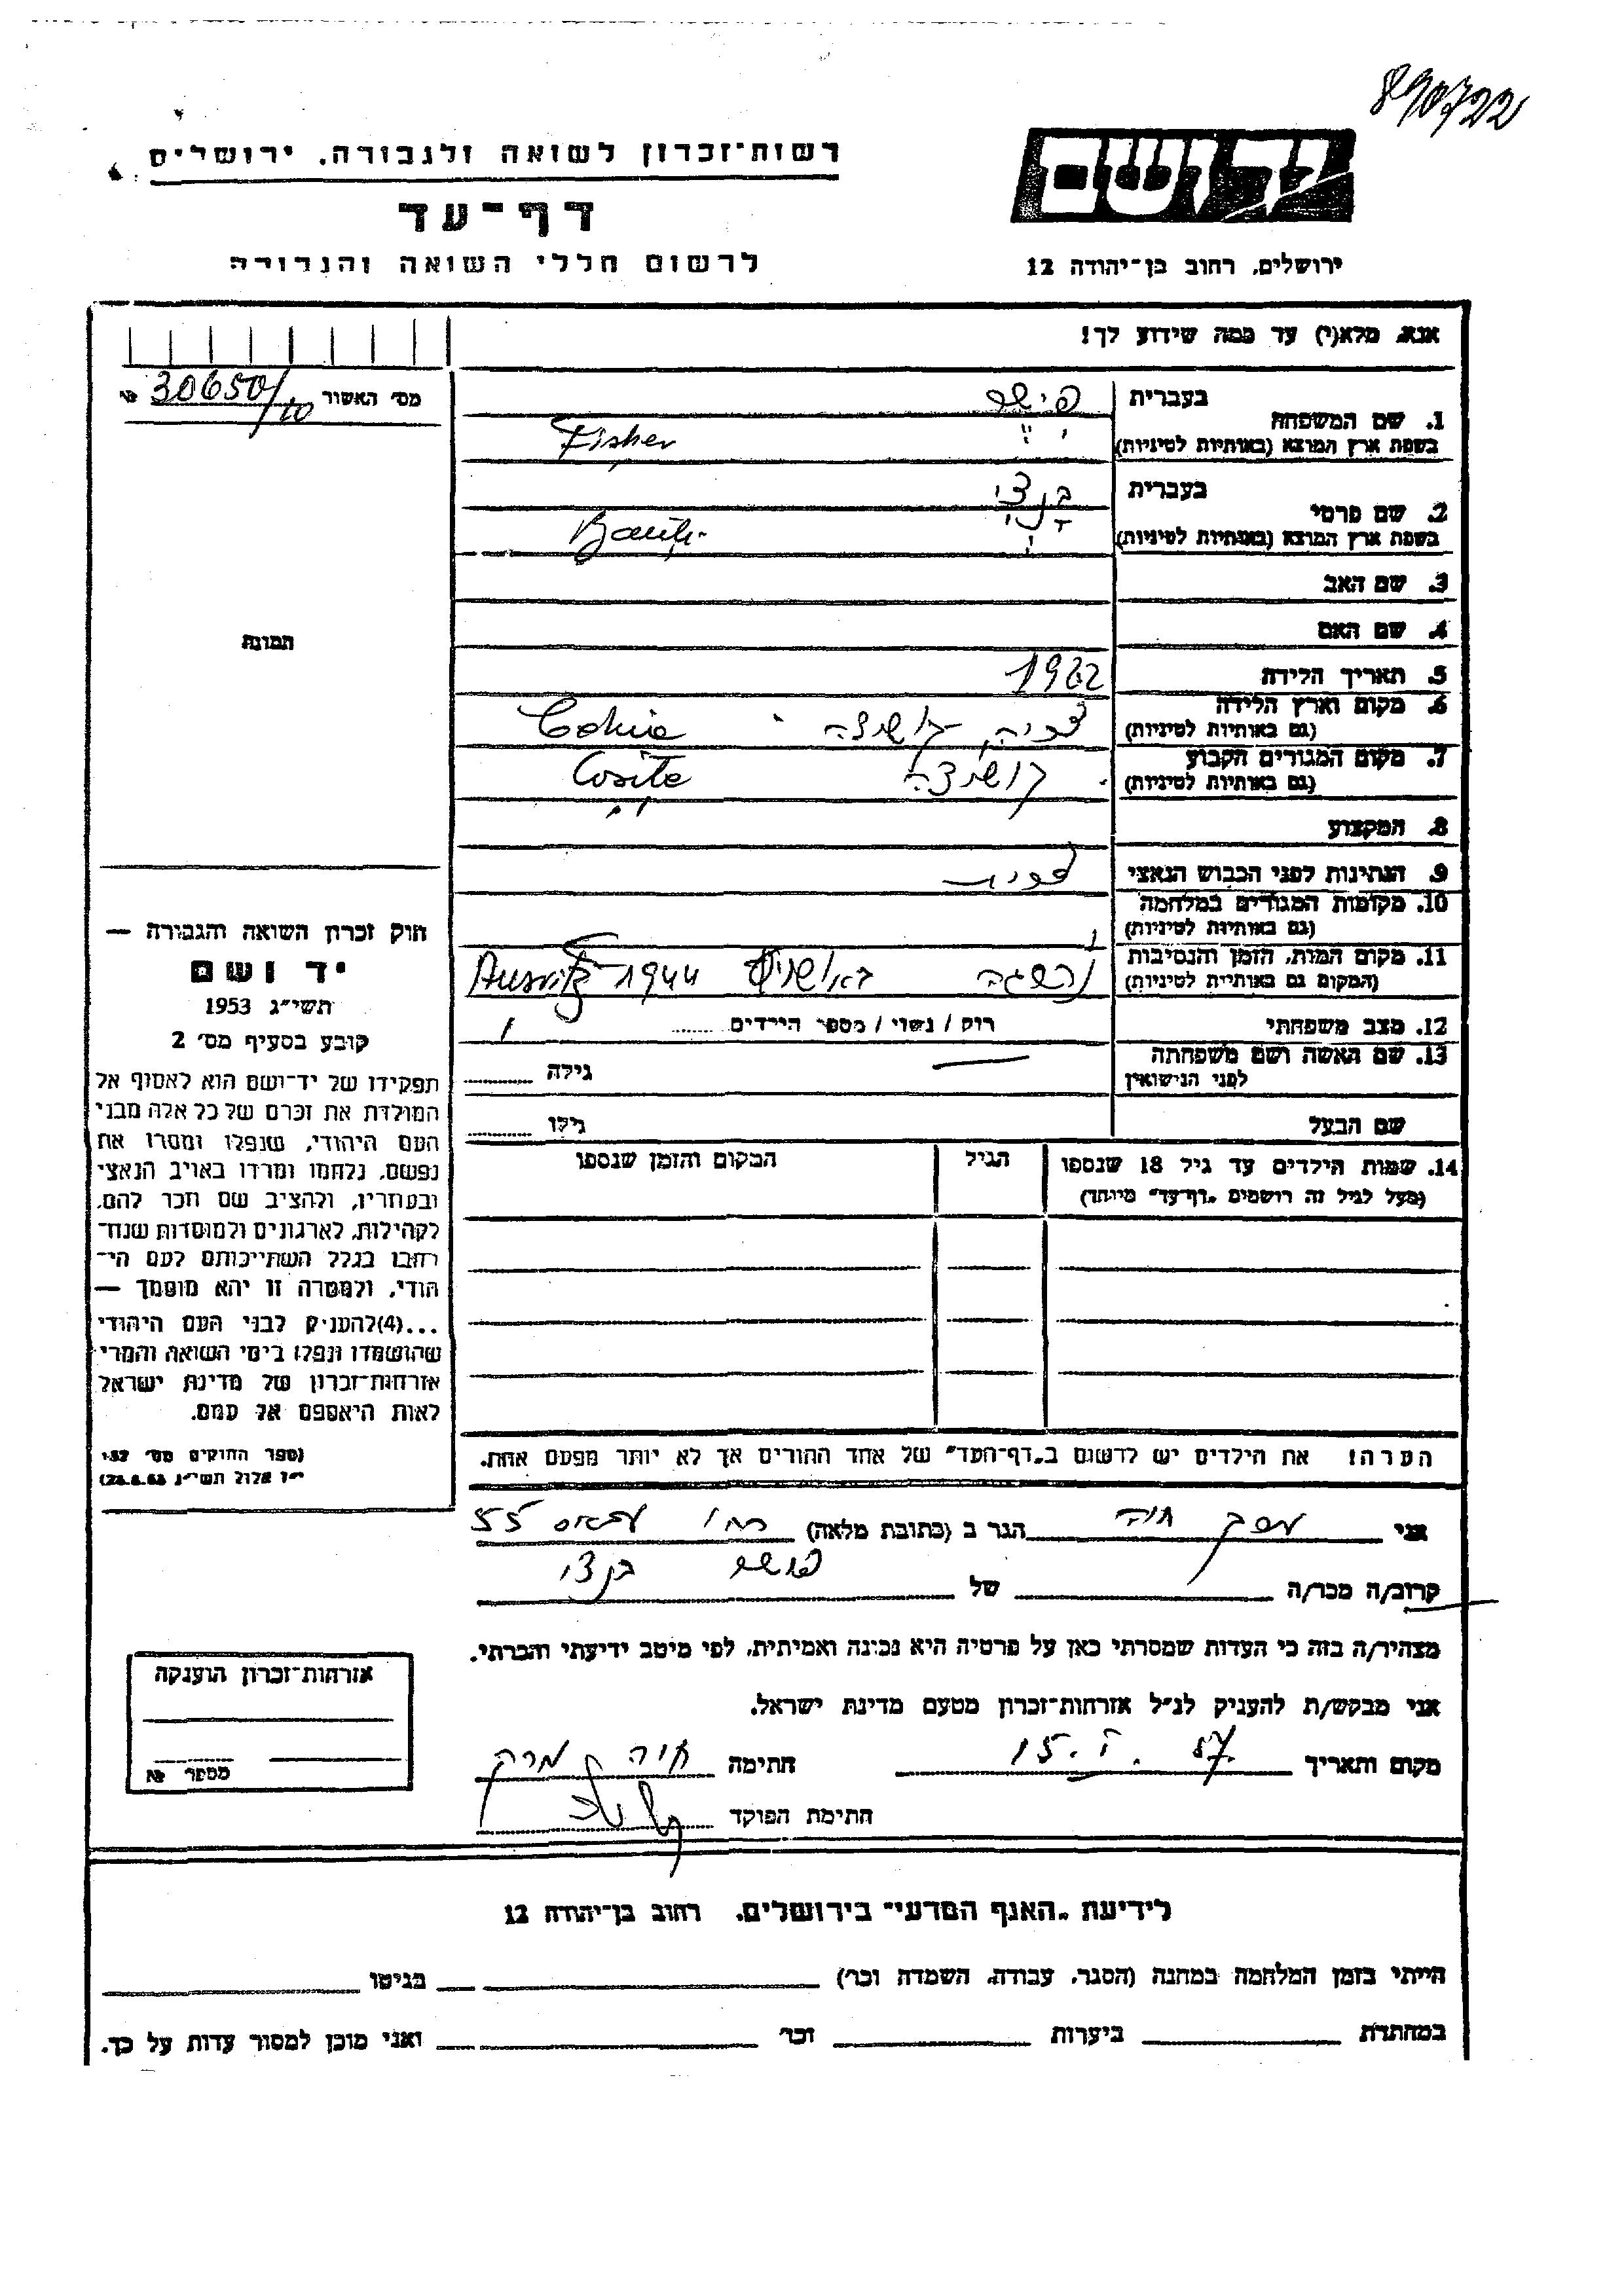 890722
רשות־זכרון לשואה ולגבורה, ירושלים
דף־עד
לרשום חללי השואה והגבורה
יד ושם
ירושלים, רחוב בן־יהודה 12
אנא, מלא(י) עד כמה שידוע לך!
מס׳ האשור 30650/10 №
1. שם המשפחה
בעברית פישר
בשפת ארץ המוצא (באותיות לטיניות) Fisher
2. שם פרטי
בעברית בן צי
בשפת ארץ המוצא (באותיות לטיניות)
3. שם האב
4. שם האם
5. תאריך הלידה
6. מקום וארץ הלידה
(גם באותיות לטיניות)
7. מקום המגורים הקבוע
(גם באותיות לטיניות) קושיצה
8. המקצוע
9. הנתינות לפני הכבוש הנאצי
10. מקומות המגורים במלחמה
(גם באותיות לטיניות)
11. מקום המות, הזמן והנסיבות
(המקום גם באותיות לטיניות) 1944
12. מצב משפחתי
רווק / נשוי / מספר הילדים
13. שם האשה ושם משפחתה
לפני הנישואין
גילה
שם הבעל
גילו
14. שמות הילדים עד גיל 18 שנספו
(מעל לגיל זה רושמים „דף־עד״ מיוחד)
הגיל
המקום והזמן שנספו
הערה! את הילדים יש לרשום ב„דף־העד״ של אחד ההורים אך לא יותר מפעם אחת.
תמונה
חוק זכרון השואה והגבורה —
יד ושם
תשי״ג 1953
קובע בסעיף מס׳ 2
תפקידו של יד־ושם הוא לאסוף אל
המולדת את זכרם של כל אלה מבני
העם היהודי, שנפלו ומסרו את
נפשם, נלחמו ומרדו באויב הנאצי
ובעוזריו, ולהציב שם וזכר להם,
לקהילות, לארגונים ולמוסדות שנח־
רבו בגלל השתייכותם לעם הי־
הודי, ולמטרה זו יהא מוסמך —
...(4) להעניק לבני העם היהודי
שהושמדו ונפלו בימי השואה והמרי
אזרחות־זכרון של מדינת ישראל
לאות היאספם אל עמם.
(ספר החוקים מס׳ 132
י״ז אלול תשי״ג 28.8.53)
אני חיה הגר ב (כתובת מלאה) 55
קרוב/ה מכר/ה של פישר בן צי
מצהיר/ה בזה כי העדות שמסרתי כאן על פרטיה היא נכונה ואמיתית, לפי מיטב ידיעתי והכרתי.
אני מבקש/ת להעניק לנ״ל אזרחות־זכרון מטעם מדינת ישראל.
מקום ותאריך 15.I.57 חתימה חיה
חתימת הפוקד
אזרחות־זכרון הוענקה
מספר №
לידיעת „האגף המדעי״ בירושלים, רחוב בן־יהודה 12
הייתי בזמן המלחמה במחנה (הסגר, עבודה, השמדה וכו׳) בגיטו
במחתרת ביערות וכו׳ ואני מוכן למסור עדות על כך.